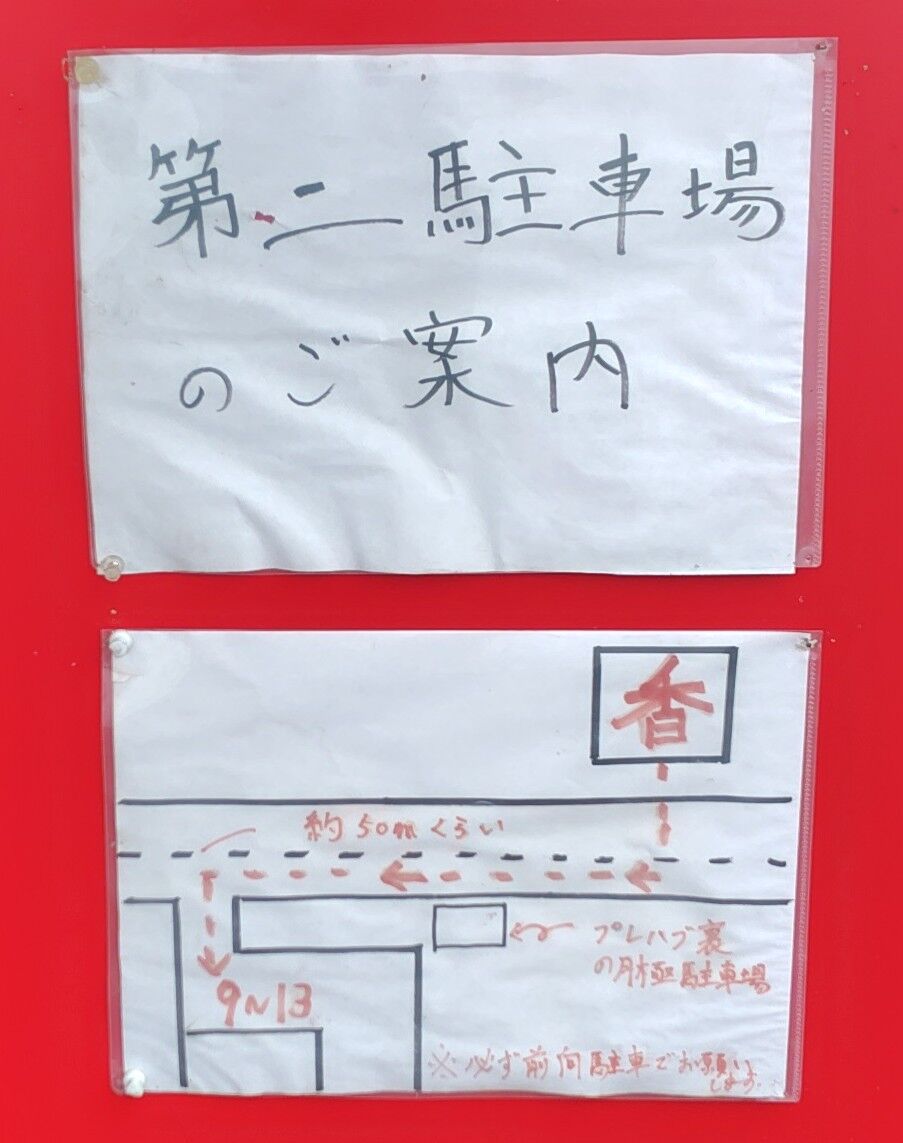 第二駐車場
のご案内
香
約50mくらい
プレハブ裏
の月極駐車場
9~13
※必ず前向駐車でお願い
します。